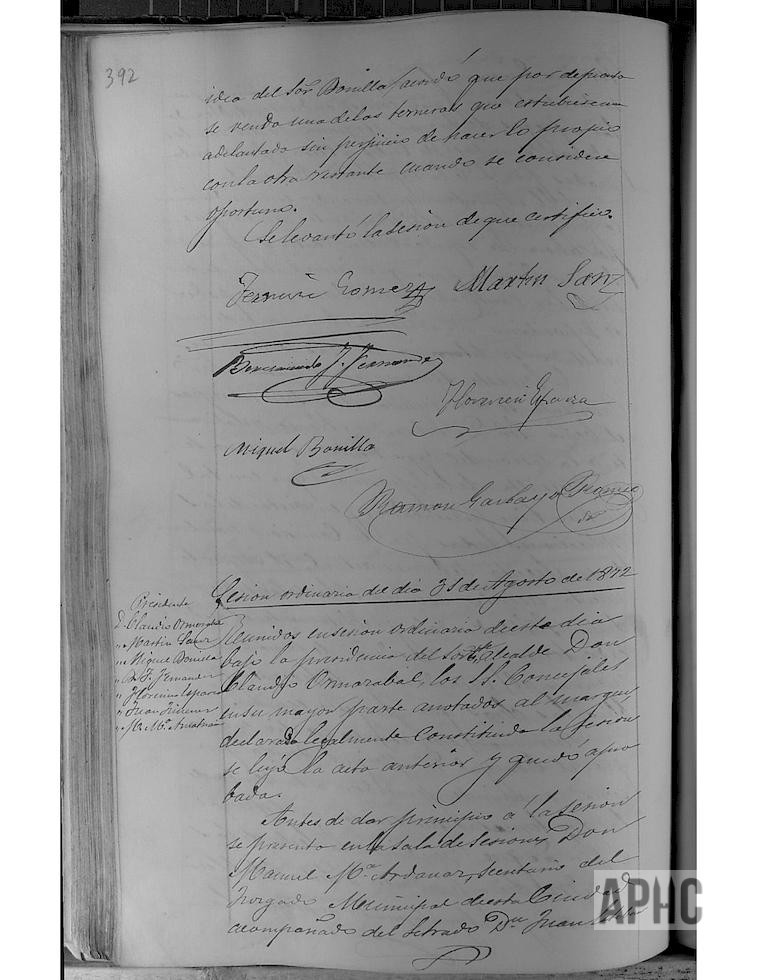 392
idea del Sor. Bonilla acordó que por de pronto
se venda una de las terneras que estubiese mas
adelantada sin perjuicio de hacer lo propio
con la otra restante cuando se considere
oportuno.
Se levantó la sesion de que certifico.
Gomez Martin Sanz
Fernandez
Florencio Esparza
Miguel Bonilla
Ramon Garbayo
Srio
Sesion ordinaria del dia 31 de Agosto de 1872
Presidente
D. Claudio Ormazabal
" Martin Sanz
" Miguel Bonilla
" B. F. Fernandez
" Florencio Esparza
" Juan
" M. Ma.
Reunidos en sesion ordinaria de este dia
bajo la presidencia del Sor. Alcalde Don
Claudio Ormazabal, los S.S. Concejales
en su mayor parte anotados al margen
declarada legalmente constituida la sesion
se leyó la acta anterior y quedó apro
bada.
Antes de dar principio á la sesion
se presento en la sala de sesiones Don
Manuel Ma. Ardanaz, secretario del
Juzgado Municipal de esta Ciudad
acompañado del Letrado Dn. Juan
APHC